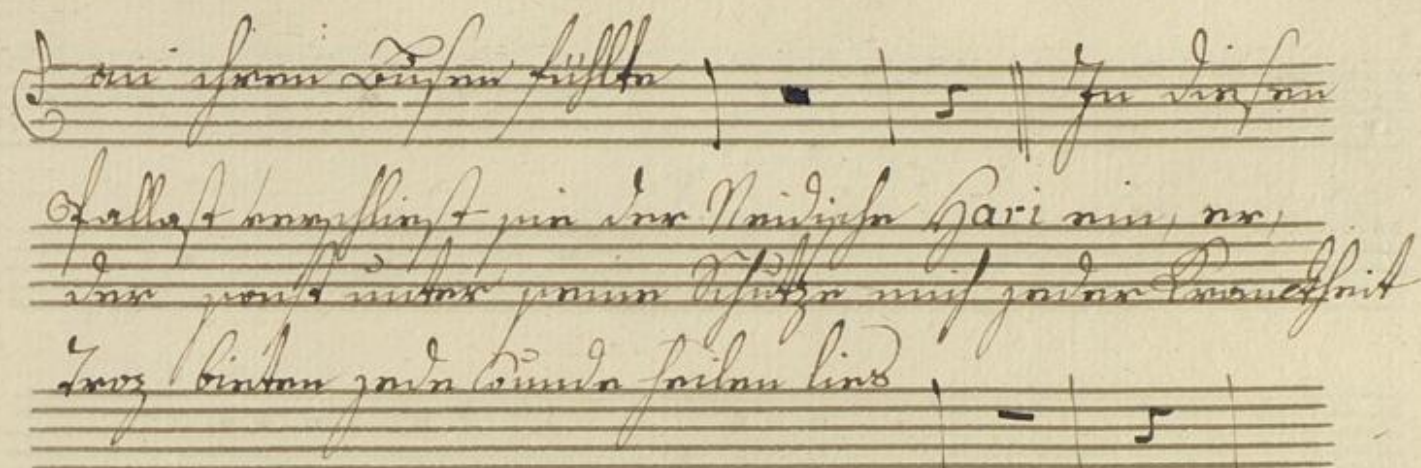 an ihrem Busen fühlte In diesen
Pallast verschliest sie der Neidische Hari ein, er,
der sonst unter seinem Schutze mich jeder Kranckheit
Troz bieten jede Wunde heilen lies